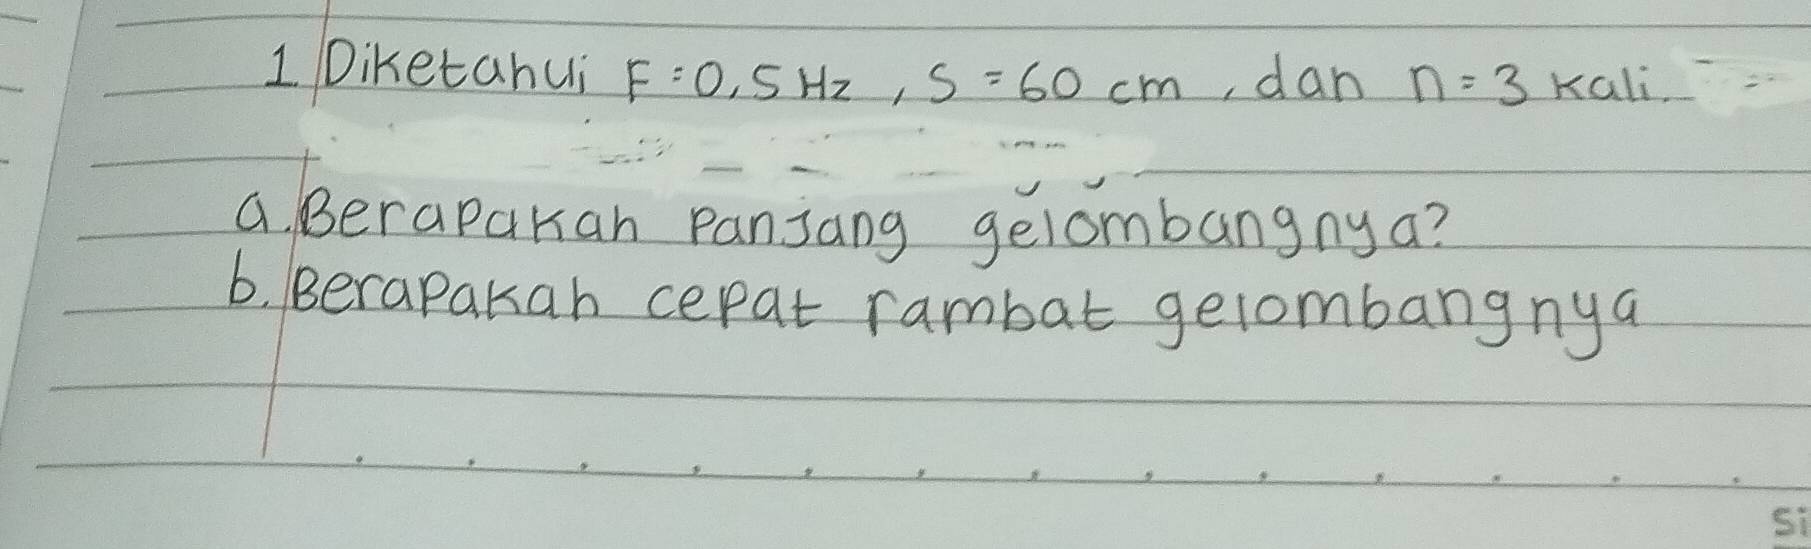 1. Diketahui F = 0,5 Hz, S = 60 cm, dan n = 3 kali.
a. Berapakah Panjang gelombangnya?
b. Berapakah cepat rambat gelombangnya
Si